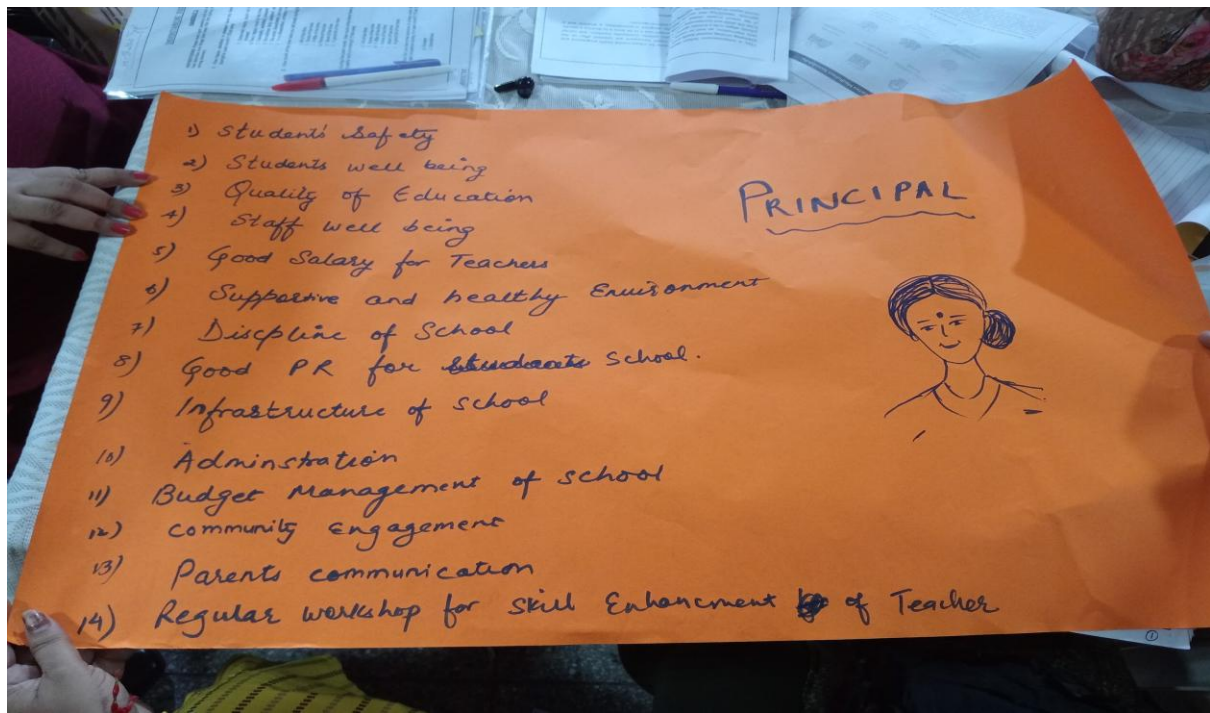 1) Students' Safety
2) Students well being
3) Quality of Education
4) Staff well being
5) Good Salary for Teachers
6) Supportive and healthy Environment
7) Discpline of School
8) Good PR for School.
9) Infrastructure of School
10) Adminstration
11) Budget Management of School
12) Community Engagement
13) Parents communication
14) Regular workshop for Skill Enhancment of Teacher
PRINCIPAL